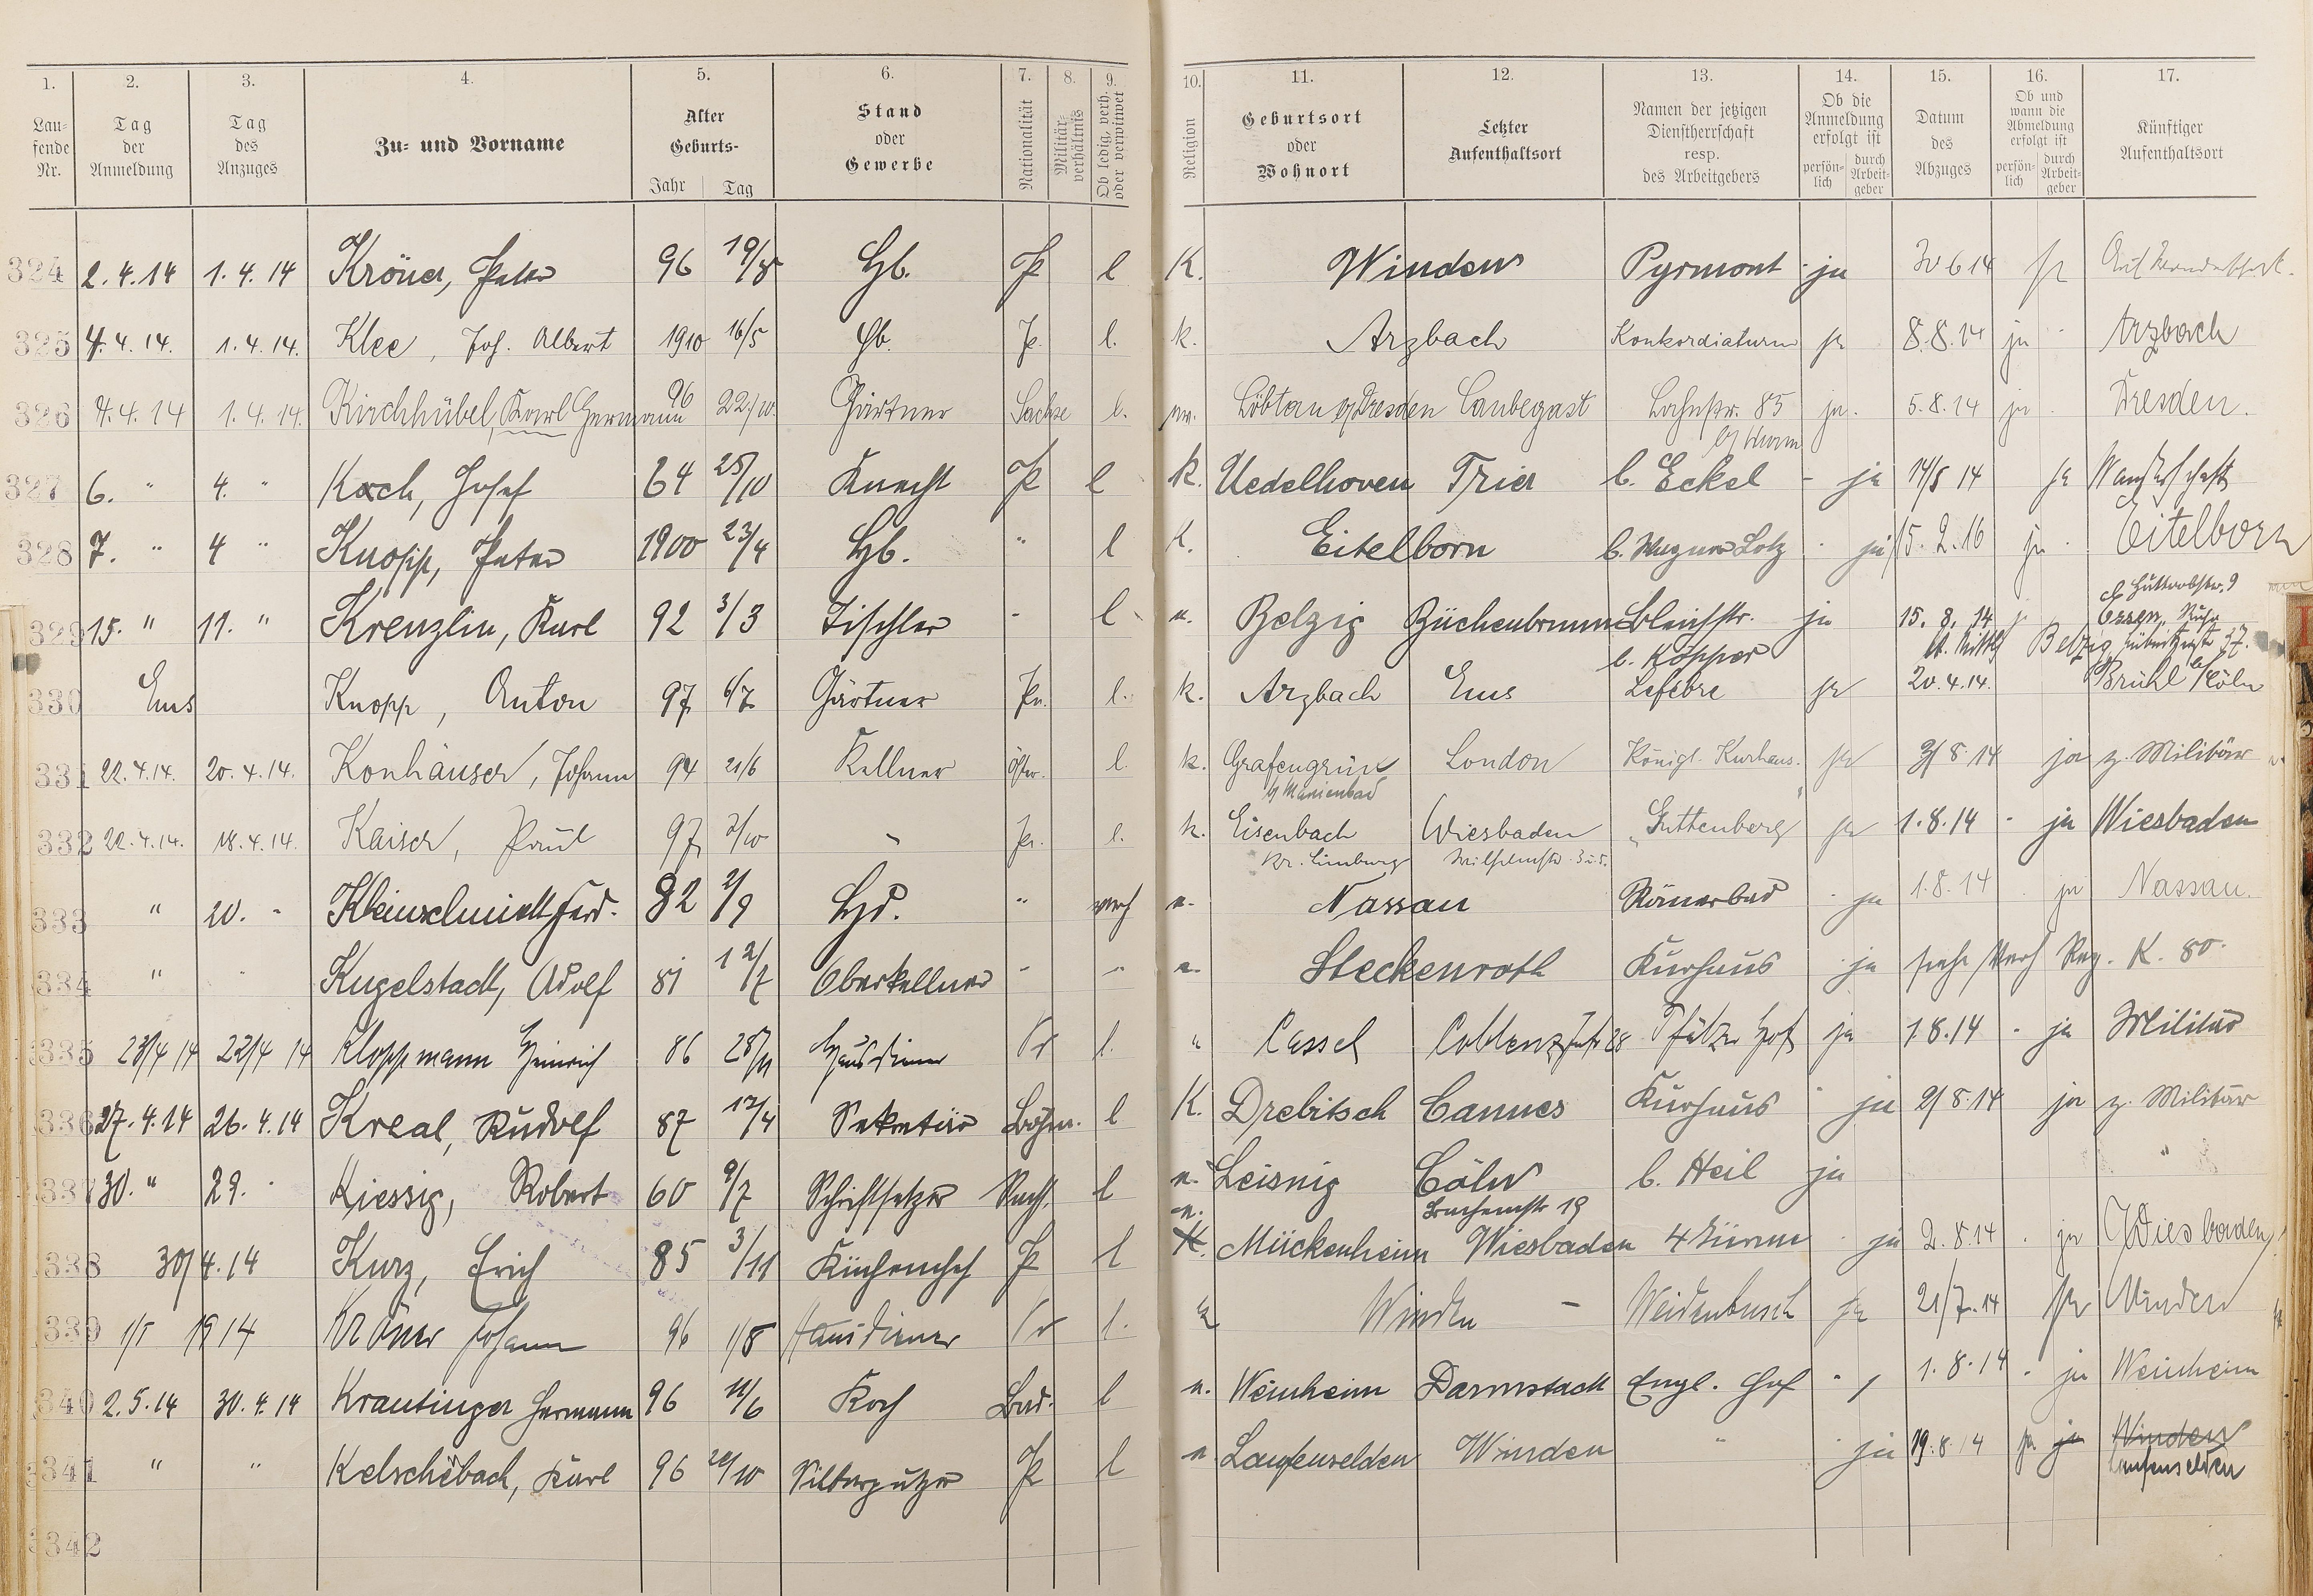 1. 2. 3. 4. 5. 6. 7. 8. 9. 10. 11. 12. 13. 14. 15. 16. 17.
Laufende Nr. Tag der Anmeldung Tag des Anzuges Zu- und Vorname Alter Geburts- Jahr Tag Stand oder Gewerbe Nationalität Militärverhältnis Ob ledig, verh. oder verwitwet Religion Geburtsort oder Wohnort Letzter Aufenthaltsort Namen der jetzigen Dienstherrschaft resp. des Arbeitgebers Ob die Anmeldung erfolgt ist persönlich durch Arbeitgeber Datum des Abzuges Ob und wann die Abmeldung erfolgt ist persönlich durch Arbeitgeber Künftiger Aufenthaltsort
324 2.4.14 1.4.14 Kröner, Peter 96 19/8 Hb. P l K. Winden Pyrmont ja 30 6 14 ja Auf Wanderschaft.
325 4.4.14. 1.4.14. Klee, Joh. Albert 1910 16/5 Hb. P. l. k. Arzbach Konkordiaturm ja 8.8.14 ja Arzbach
326 4.4.14 1.4.14. Kirchhübel, Karl Hermann 96 22./10. Gärtner Sachse l. Löbtau b/Dresden Laubegast Lahnstr. 85 ja. 5.8.14 ja Dresden.
327 6. " 4. " Koch, Josef 64 25/10 Knecht P l K. Uedelhoven Trier b. Eckel - ja 14/8 14 ja Wanderschaft
328 7. " 4 " Knopp, Peter 1900 23/4 Hb. " l K. Eitelborn b. Wagner Lotz ja 15.2.16 ja Eitelborn
329 15. " 11. " Krenzlin, Karl 92 3/3 Tischler - l e. Belzig Büchenbronn Bleichstr. b. Köpper ja 15.8.14 Essen, Ruhr
Belzig
330 Ems Knopp, Anton 97 6/7 Gärtner Pr. l. k. Arzbach Ems Lefebre ja 20.4.14. Brühl b/Cöln
331 22.4.14. 20.4.14. Konhäuser, Johann 94 21/6 Kellner Östr. l. k. Grafengrün b/ Marienbad London Königl. Kurhaus. ja 3/8 14 ja z. Militär
332 22.4.14. 18.4.14. Kaiser, Paul 97 3/10 " Pr. l. k. Eisenbach Kr. Limburg Wiesbaden Wilhelmstr. 3 u 5. "Guttenberg" ja 1.8.14 - ja Wiesbaden
333 " 20. " Kleinschmidt, Ferd. 82 2/9 Hd. " verh e. Nassau Römerbad ja 1.8.14 ja Nassau.
334 " Kugelstadt, Adolf 81 12/7 Oberkellner - " e. Steckenroth Kurhaus ja siehe Verh Reg. K. 80.
335 23/4 14 22/4 14 Kloppmann Heinrich 86 28/11 Hausdiener Pr l. " Cassel Coblenz 28 Pfälzer Hof ja 1.8.14 - ja Militär
336 27.4.14 26.4.14 Kreal, Rudolf 87 12/4 Sekretär Böhm. l K. Drebitsch Cannes Kurhaus ja 2/8.14 ja z. Militär
337 30. " 29. " Kiessig, Robert 60 9/7 Schriftsetzer Sachs. l e. Leisnig Cöln b. Heil ja "
338 30/4.14 Kurz, Erich 85 3/11 Küchenchef P l e. K. Mückenheim Wiesbaden 4 Türme ja 2.8.14 - ja Wiesbaden
339 1/5 1914 Kröner Johann 96 1/8 Hausdiener Pr l. k Winden - Weidenbusch ja 21/7.14 ja Winden
340 2.5.14 30.4.14 Krautinger Hermann 96 11/6 Koch Bad. l e. Weinheim Darmstadt Engl. Hof " 1.8.14 - ja Weinheim
341 " " Kelschebach, Karl 96 20/10 Silberputzer P l e Laufenselden Winden " ja 19.8.14 ja ja Winden Laufenselden
342